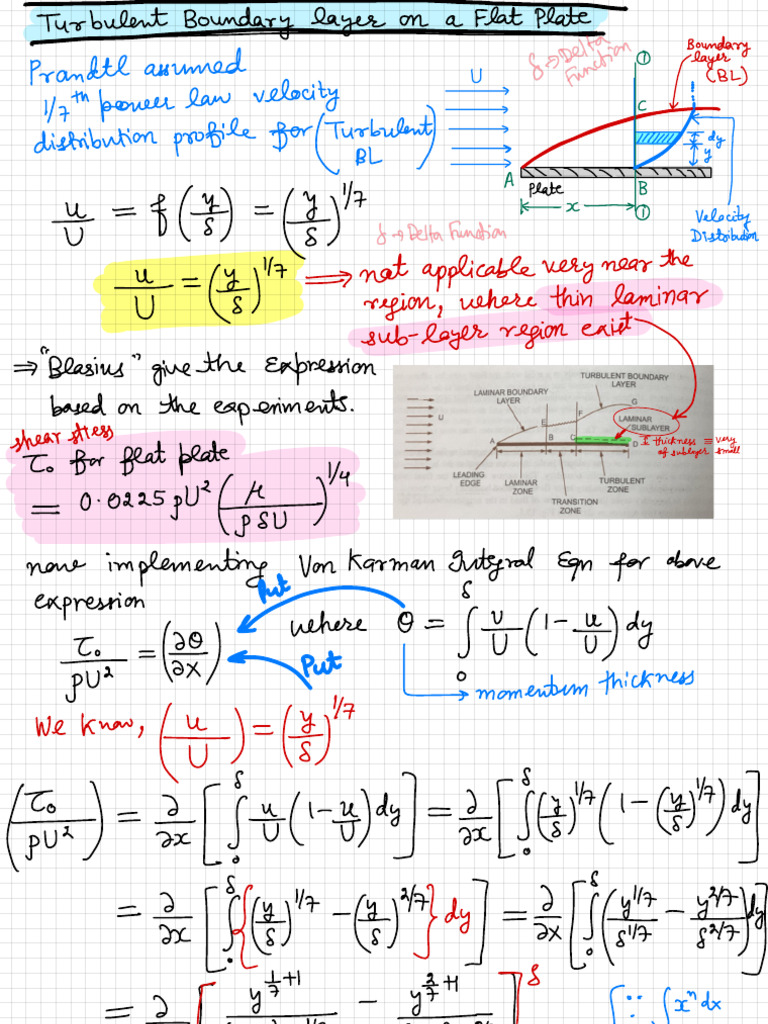 Turbulent Boundary layer on a Flat Plate
Prandtl assumed
1/7th power law velocity
distribution profile for (Turbulent
BL)
U
δ → Delta
Function
Boundary
layer
(BL)
①
C
dy
y
A
Plate
B
x
①
Velocity
Distribution
u/U = f(y/δ) = (y/δ)^1/7
δ → Delta Function
u/U = (y/δ)^1/7 ⟹ not applicable very near the
region, where thin laminar
sub-layer region exist
⇒ "Blasius" give the Expression
based on the experiments.
shear stress
τ₀ for flat plate
= 0.0225 ρU² (μ/ρδU)^1/4
TURBULENT BOUNDARY
LAYER
LAMINAR BOUNDARY
LAYER
U
E
F
G
LAMINAR
SUBLAYER
A
B
C
D
thickness = very
of sublayer small
LEADING
EDGE
LAMINAR
ZONE
TURBULENT
ZONE
TRANSITION
ZONE
now implementing Von Karman Integral Eqn for above
expression
Put
τ₀/ρU² = (∂θ/∂x) where θ = ∫₀^δ u/U (1 − u/U) dy
Put
→ momentum thickness
We know, (u/U) = (y/δ)^1/7
(τ₀/ρU²) = ∂/∂x [∫₀^δ u/U (1 − u/U) dy] = ∂/∂x [∫₀^δ (y/δ)^1/7 (1 − (y/δ)^1/7) dy]
= ∂/∂x [∫₀^δ {(y/δ)^1/7 − (y/δ)^2/7} dy] = ∂/∂x [∫₀^δ (y^1/7/δ^1/7 − y^2/7/δ^2/7) dy]
= ∂ [y^(1/7+1) − y^(2/7+1)]^δ [∵ ∫xⁿdx